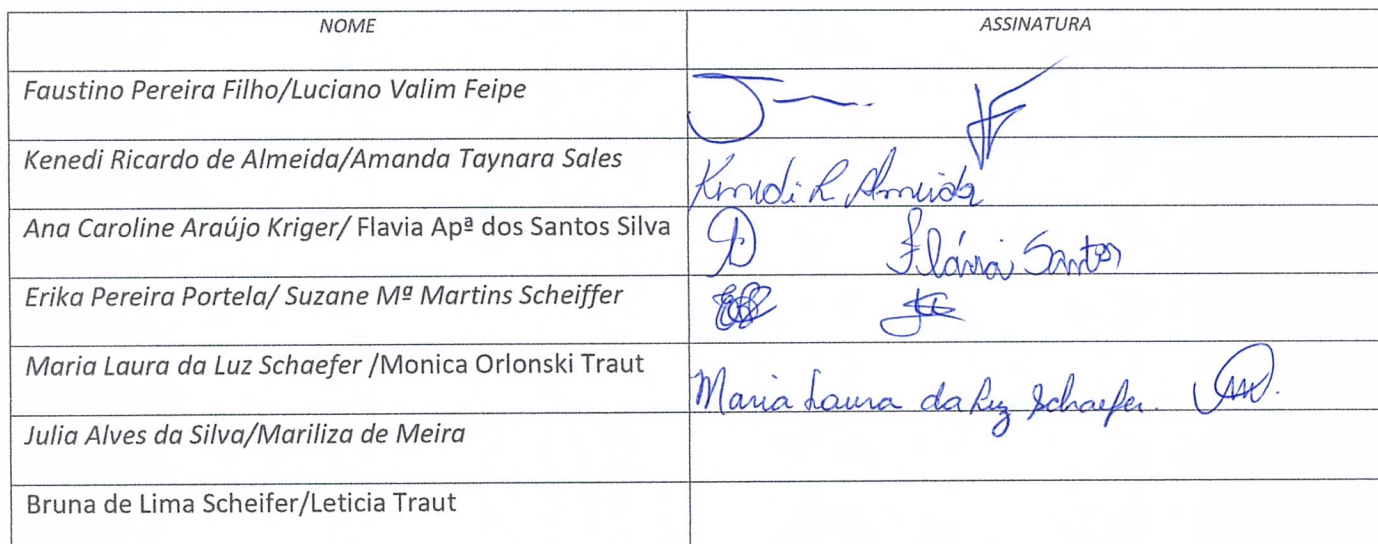 NOME ASSINATURA
Faustino Pereira Filho/Luciano Valim Feipe
Kenedi Ricardo de Almeida/Amanda Taynara Sales Kenedi R Almeida
Ana Caroline Araújo Kriger/ Flavia Apª dos Santos Silva Flávia Santos
Erika Pereira Portela/ Suzane Mª Martins Scheiffer
Maria Laura da Luz Schaefer /Monica Orlonski Traut Maria Laura da Luz Schaefer.
Julia Alves da Silva/Mariliza de Meira
Bruna de Lima Scheifer/Leticia Traut